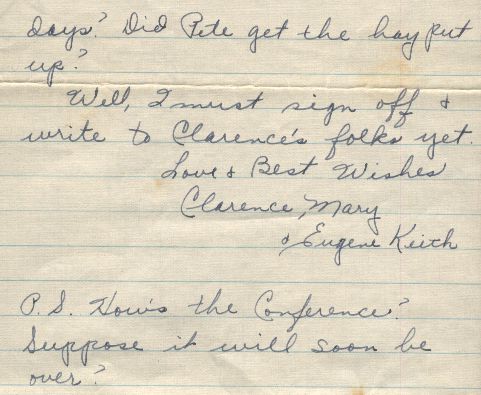 days? Did Pete get the hay put
up?
Well, I must sign off &
write to Clarence's folks yet.
Love & Best Wishes
Clarence, Mary
& Eugene Keith
P.S. How's the Conference?
Suppose it will soon be
over?